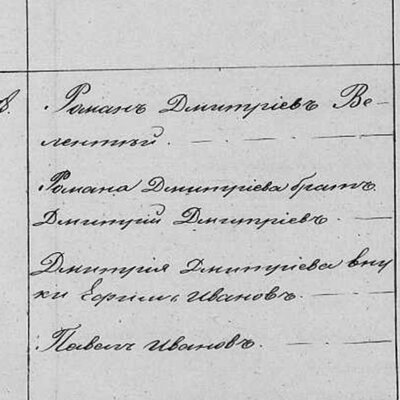 8. Романъ Дмитріевъ Ве-
лентѣй.
Романа Дмитріева братъ
Дмитрій Дмитріевъ.
Дмитрія Дмитріева вну
ки Ефимъ Ивановъ.
Павелъ Ивановъ.